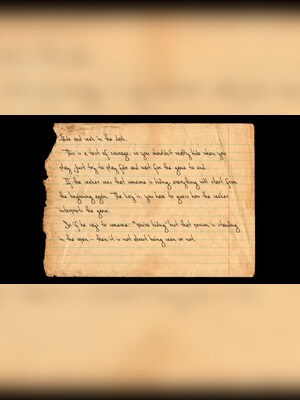 Hide and seek in the dark.
This is a test of courage, so you shouldn't really hide when you
play, just try to stay far and wait for the game to end.
If the seeker sees that someone is hiding, everything will start from
the beginning again. The key is, you have to guess how the seeker
interprets the game.
So if he says to someone "You're hiding" but that person is standing
in the open - then it is not about being seen or not.